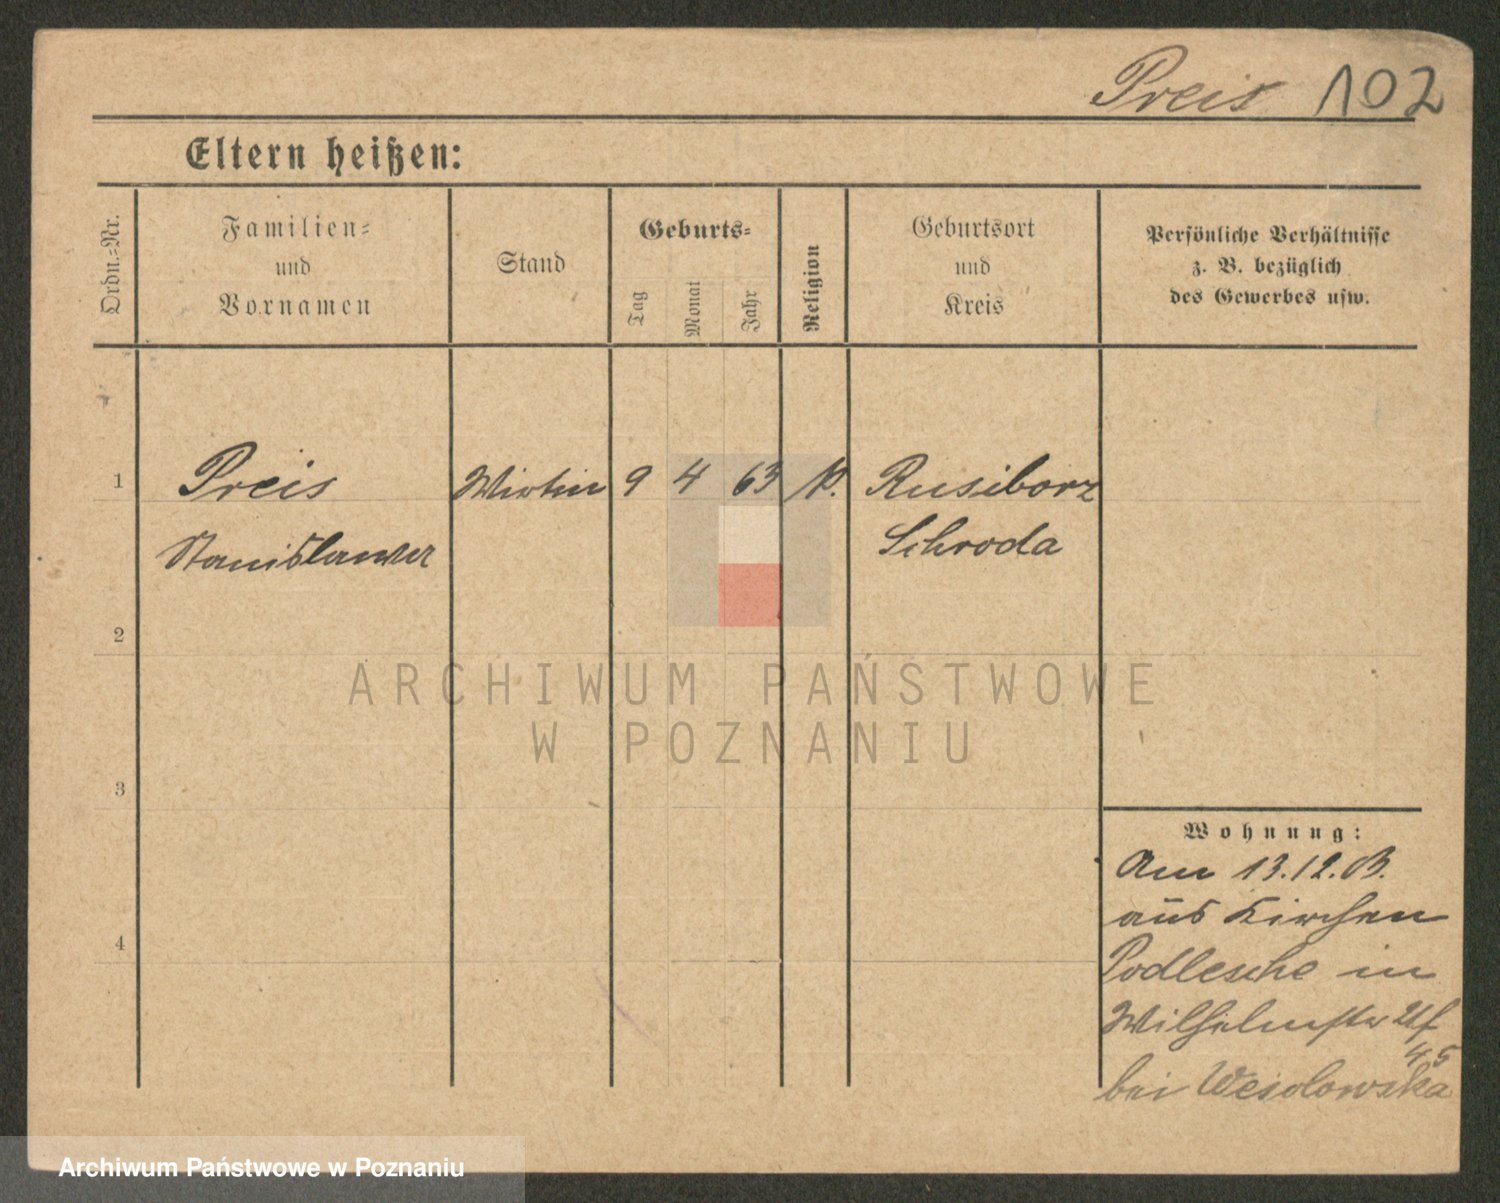 Preis 102
Eltern heißen:
Ordn.-Nr.
Familien-
und
Vornamen
Stand
Geburts-
Tag
Monat
Jahr
Religion
Geburtsort
und
Kreis
Persönliche Verhältnisse
z. B. bezüglich
des Gewerbes usw.
1 Preis Wirtin 9 4 63 k. Rusiborz
Stanislawa Schroda
2
3
4
Wohnung:
Am 13.12.03.
aus Kirchen
Podlesche in
Wilhelmstr
45
bei Wesolowska
ARCHIWUM PAŃSTWOWE
W POZNANIU
Archiwum Państwowe w Poznaniu